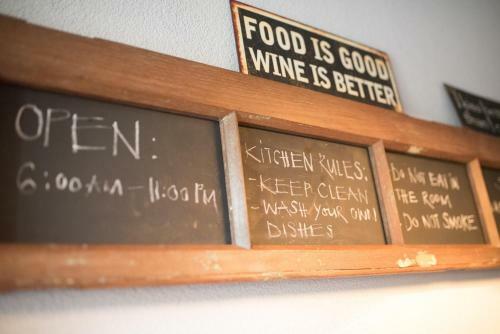 FOOD IS GOOD
WINE IS BETTER
OPEN:
6:00AM - 11:00PM
KITCHEN RULES:
- KEEP CLEAN
- WASH YOUR OWN!
DISHES
DO NOT EAT IN
THE ROOM
DO NOT SMOKE